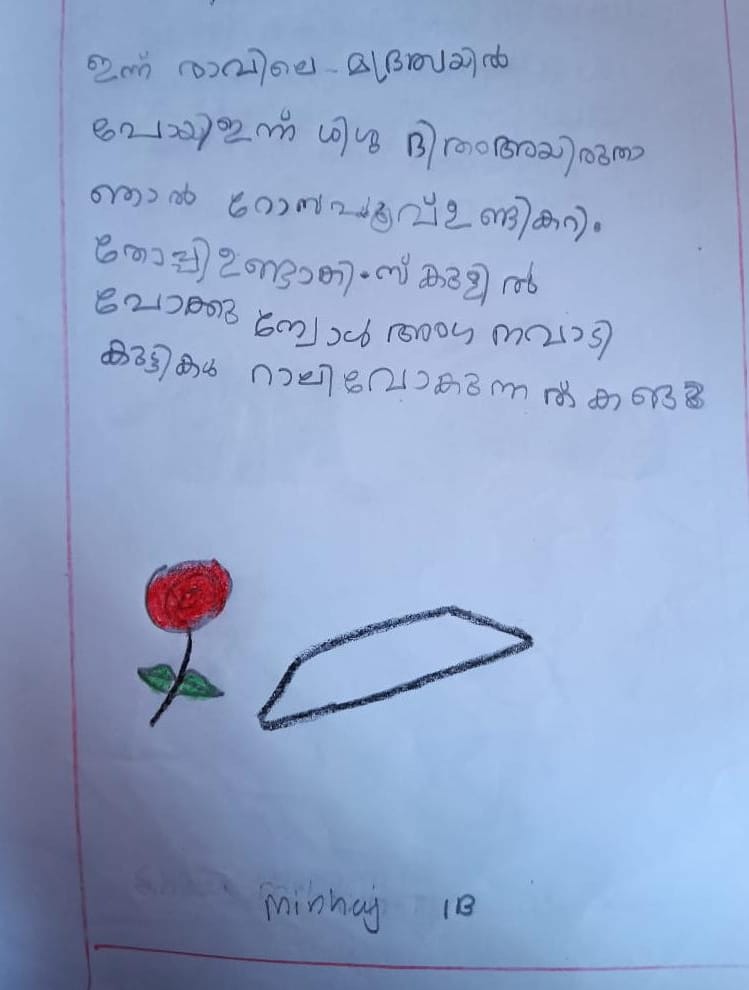 ഇന്ന് രാവിലെ മദ്രസയിൽ
പോയിഇന്ന് ശിശു ദിതംആയിരുതാ
ഞാൽ റോസപൂവ്ഉണ്ടികറി.
തോപ്പിഉണ്ടാകി.സ്കുളിൽ
പോക്കു മ്പോൾ അംഗ നവാടി
കുട്ടികൾ റാലിപോകുന്നത്കണ്ടു
minhaj 1B